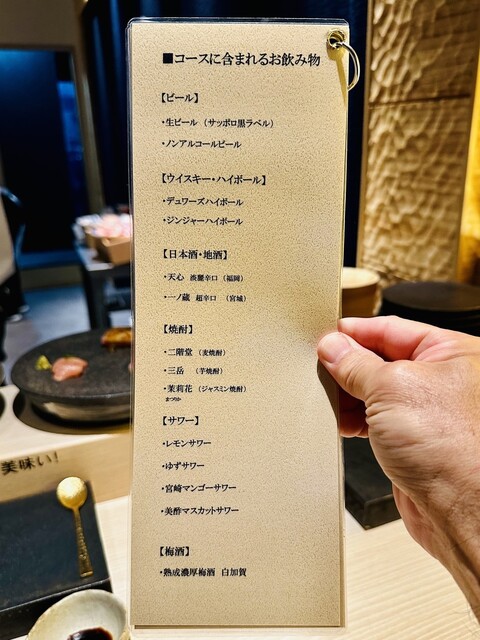 ■コースに含まれるお飲み物
【ビール】
・生ビール（サッポロ黒ラベル）
・ノンアルコールビール
【ウイスキー・ハイボール】
・デュワーズハイボール
・ジンジャーハイボール
【日本酒・地酒】
・天心 淡麗辛口（福岡）
・一ノ蔵 超辛口 （宮城）
【焼酎】
・二階堂 （麦焼酎）
・三岳 （芋焼酎）
・茉莉花（ジャスミン焼酎）
まつりか
【サワー】
・レモンサワー
・ゆずサワー
・宮崎マンゴーサワー
・美酢マスカットサワー
【梅酒】
・熟成濃厚梅酒 白加賀
美味い!